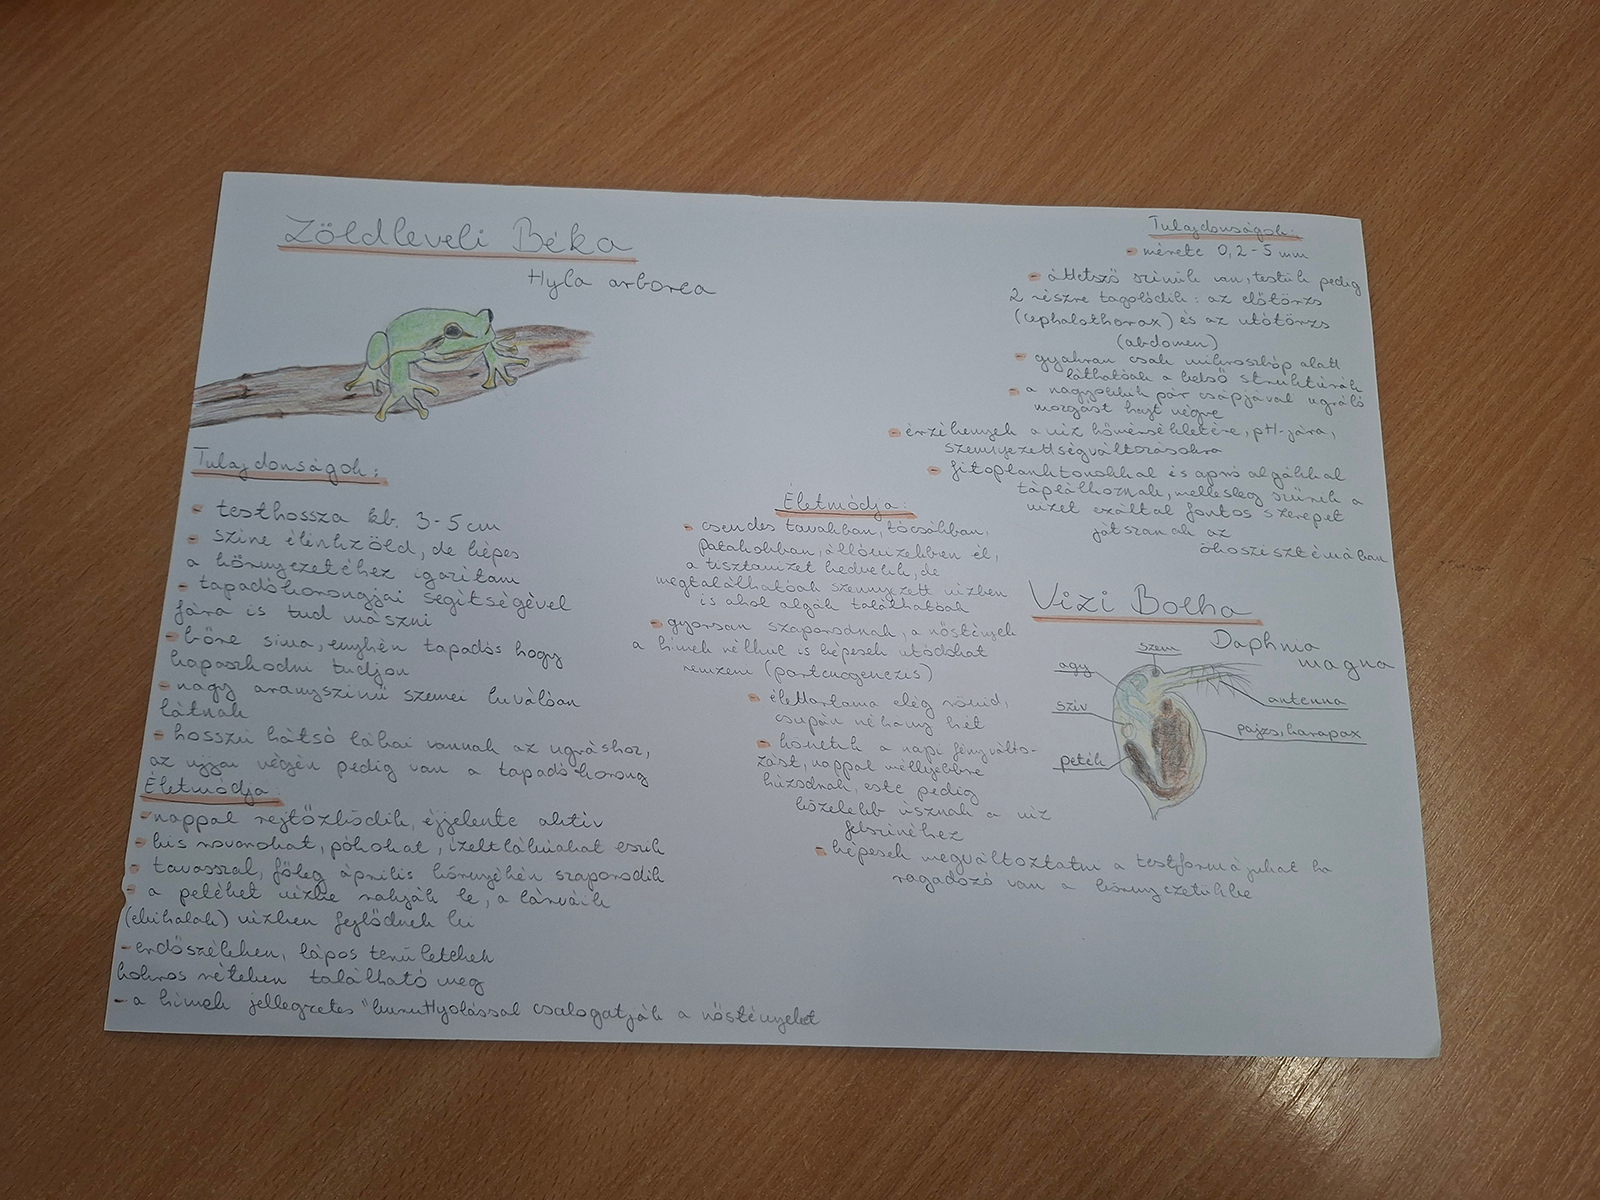 Zöldleveli Béka
Hyla arborea
Tulajdonságok:
- testhossza kb. 3-5 cm
- színe élénkzöld, de képes
a környezetéhez igazítani
- tapadókorongjai segítségével
fára is tud mászni
- bőre sima, enyhén tapadós hogy
kapaszkodni tudjon
- nagy aranyszínű szemei kiválóan
látnak
- hosszú hátsó lábai vannak az ugráshoz,
az ujjai végén pedig van a tapadó korong
Életmódja:
- nappal rejtőzködik, éjjelente aktív
- kis rovarokat, pókokat, ízeltlábúakat eszik
- tavasszal, főleg április környékén szaporodik
- a petéket vízbe rakják le, a lárváik
(ebihalak) vízben fejlődnek ki
- erdőszéleken, lápos területeken
bokros réteken található meg
- a hímek jellegzetes "kuruttyolással csalogatják a nőstényeket
Tulajdonságok:
- mérete 0,2-5 mm
- áttetsző színük van, testük pedig
2 részre tagolódik: az előtörzs
(cephalothorax) és az utótörzs
(abdomen)
- gyakran csak mikroszkóp alatt
láthatóak a belső struktúráik
- a nagyobbik pár csápjával ugráló
mozgást hajt végre
- érzékenyek a víz hőmérsékletére, pH-jára,
szennyezettségváltozásokra
- fitoplanktonokkal és apró algákkal
táplálkoznak, mellesleg szűrik a
vizet ezáltal fontos szerepet
játszanak az
ökoszisztémában
Életmódja:
- csendes tavakban, tócsákban,
patakokban, állóvizekben él,
a tisztavizet kedvelik, de
megtalálhatóak szennyezett vízben
is ahol algák találhatóak
- gyorsan szaporodnak, a nőstények
a hímek nélkül is képesek utódokat
nemzeni (partenogenezis)
- élettartama elég rövid,
csupán néhány hét
- követik a napi fényválto-
zást, nappal mélyebbre
húzódnak, este pedig
közelebb úsznak a víz
felszínéhez
- képesek megváltoztatni a testformájukat ha
ragadozó van a környezetükbe
Vizi Bolha
Daphnia
magna
szem
agy
antenna
szív
pajzs, karapax
peték